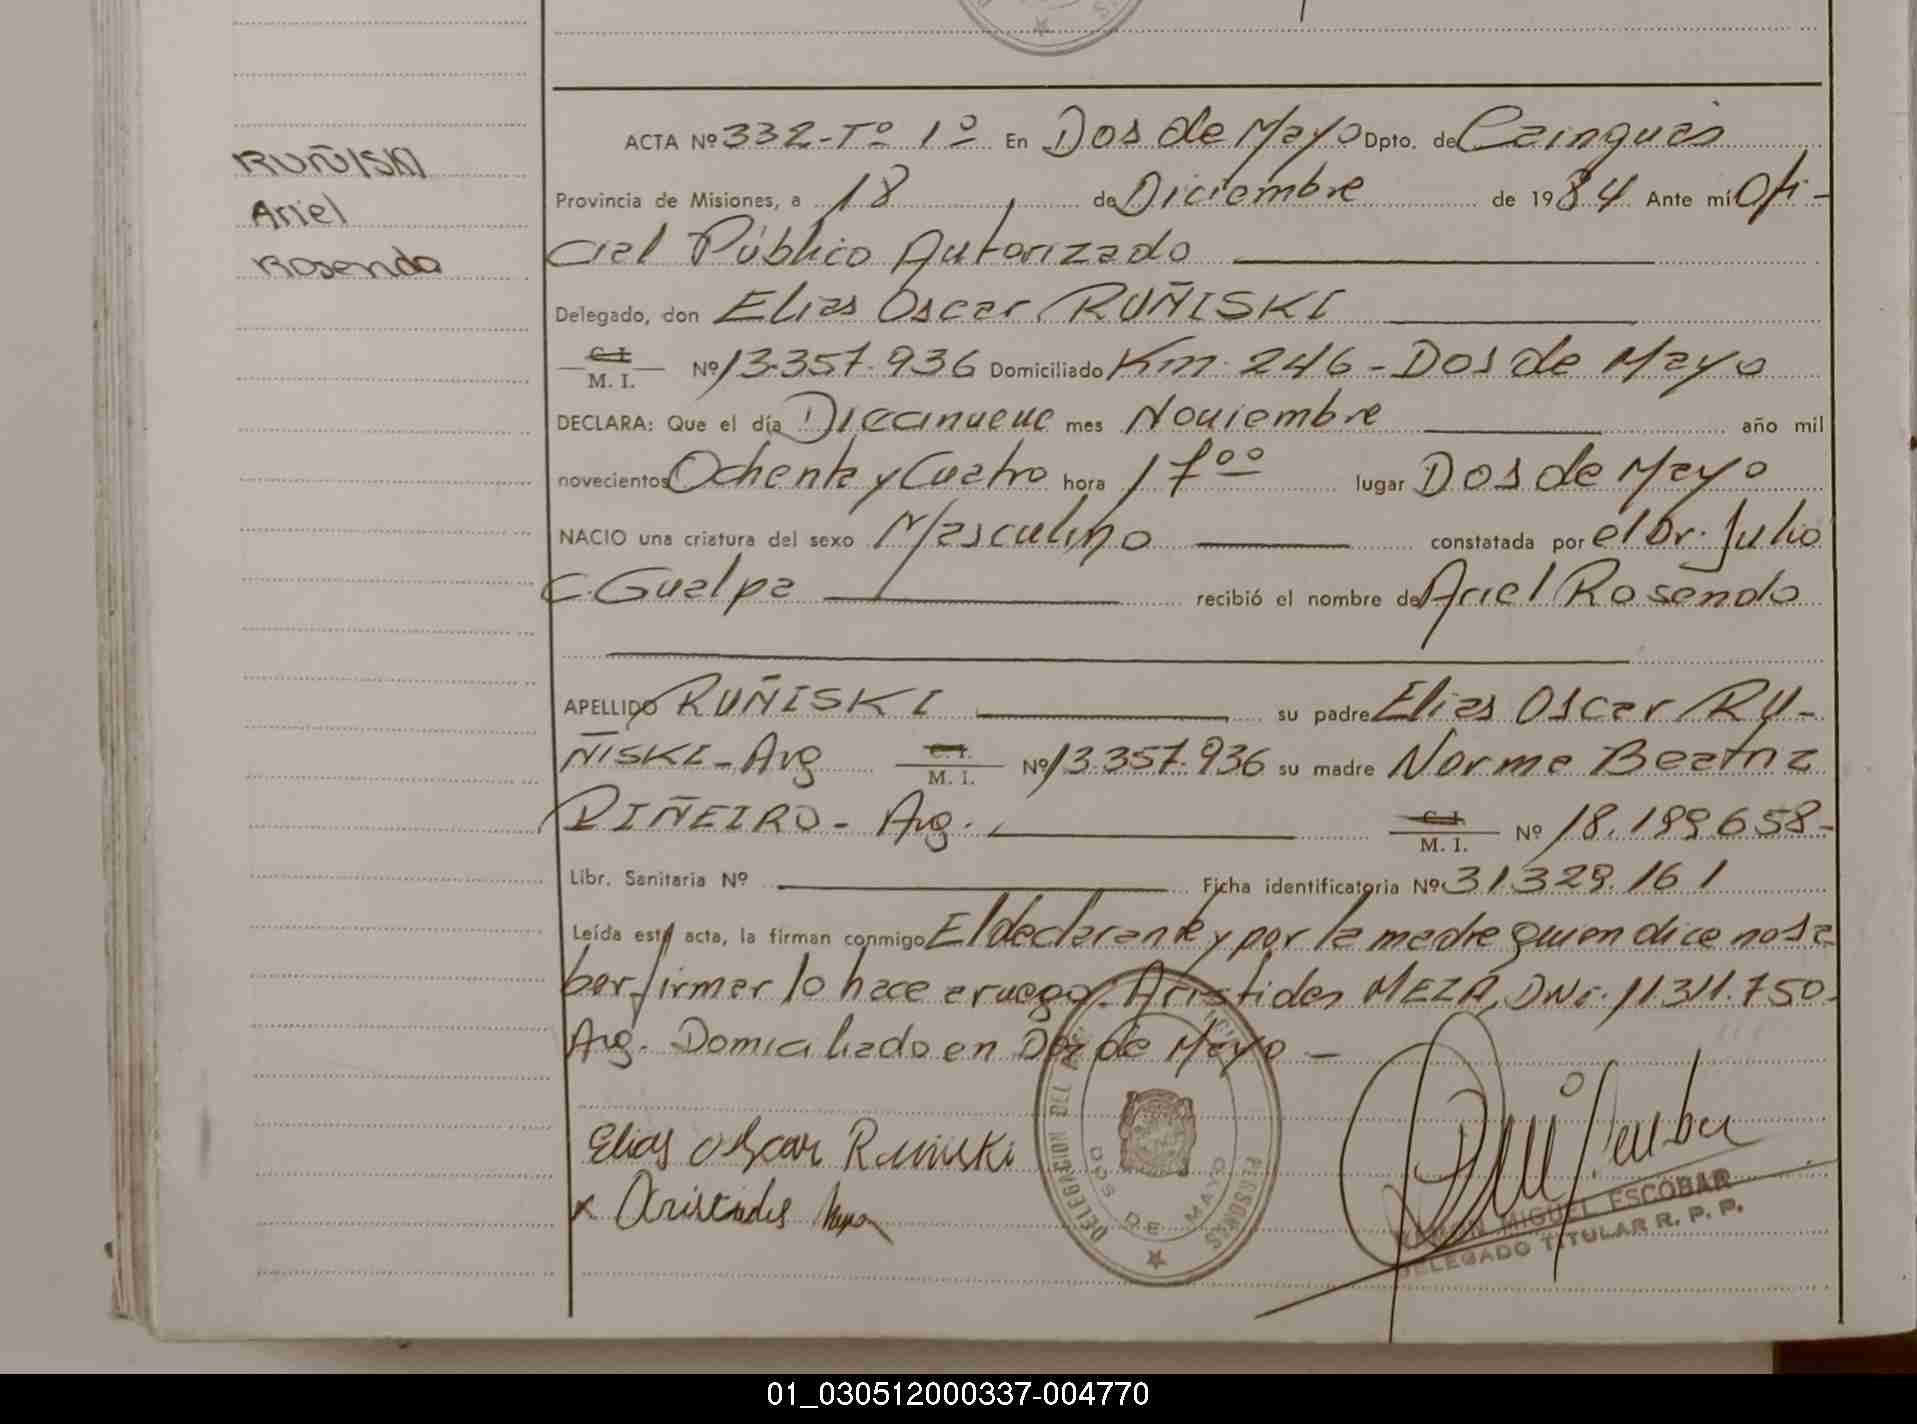 RUÑISKI
Ariel
Rosendo
ACTA Nº 332-Tº 1º En Dos de Mayo Dpto. de Cainguás
Provincia de Misiones, a 18 de Diciembre de 1984 Ante mí Ofi-
cial Público Autorizado
Delegado, don Elias Oscar RUÑISKI
C.I. M. I. Nº 13.357.936 Domiciliado Km. 246 - Dos de Mayo
DECLARA: Que el día Diecinueve mes Noviembre año mil
novecientos Ochenta y Cuatro hora 17⁰⁰ lugar Dos de Mayo
NACIO una criatura del sexo Masculino constatada por el Dr. Julio
C. Gualpa recibió el nombre de Ariel Rosendo
APELLIDO RUÑISKI su padre Elias Oscar RU-
ÑISKI - Arg C.I. M. I. Nº 13.357.936 su madre Norma Beatriz
PIÑEIRO - Arg. C.I. M. I. Nº 18.199.658-
Libr. Sanitaria Nº Ficha identificatoria Nº 31.329.161
Leída esta acta, la firman conmigo El declarante y por la madre quien dice no sa
ber firmar lo hace a ruego. Aristides MEZA, DNI. 11.311.750-
Arg. Domiciliado en Dos de Mayo -
Elias Oscar Ruñiski
x Aristides Meza
DELEGACION DEL PERSONAS
DOS DE MAYO
RAMON MIGUEL ESCOBAR
DELEGADO TITULAR R. P. P.
01_030512000337-004770